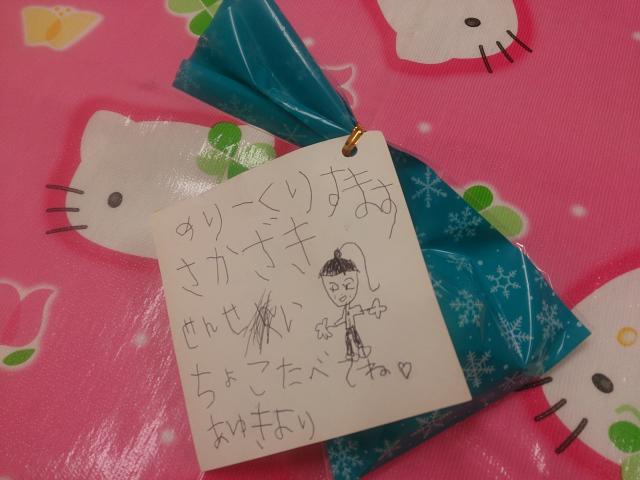 めりーくりすます
さかざき
せんせい
ちょこたべてね♡
あゆきより